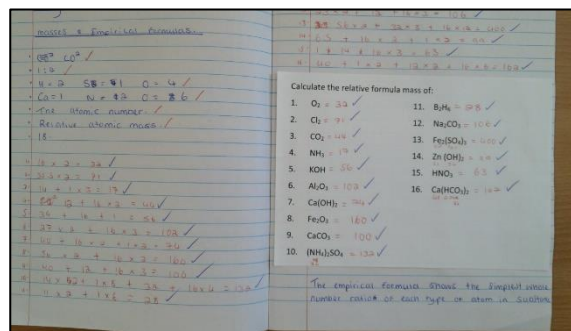 masses & Empirical formulas.
CO²
1:2
H=2 S=1 O=4
Ca=1 N=2 O=6
The atomic number
Relative atomic mass
18
16 x 2 = 32
14 + 1 x 3 = 17
12 + 16 x 2 = 44
39 + 16 + 1 = 56
27 x 2 + 16 x 3 = 102
40 + 16 x 2 + 1 x 2 = 74
56 x 2 + 16 x 3 = 160
40 + 12 + 16 x 3 = 100
11 x 2 + 1 x 6 = 28
1 + 14 + 16 x 3 = 63
Calculate the relative formula mass of:
1. O₂ = 32
2. Cl₂ = 71
3. CO₂ = 44
4. NH₃ = 17
5. KOH = 56
6. Al₂O₃ = 102
7. Ca(OH)₂ = 74
8. Fe₂O₃ = 160
9. CaCO₃ = 100
10. (NH₄)₂SO₄ = 132
11. B₂H₆ = 28
12. Na₂CO₃ = 106
13. Fe₂(SO₄)₃ = 400
14. Zn (OH)₂ = 99
15. HNO₃ = 63
16. Ca(HCO₃)₂ = 162
The empirical formula shows the simplest whole
number ratio of each type or atom in